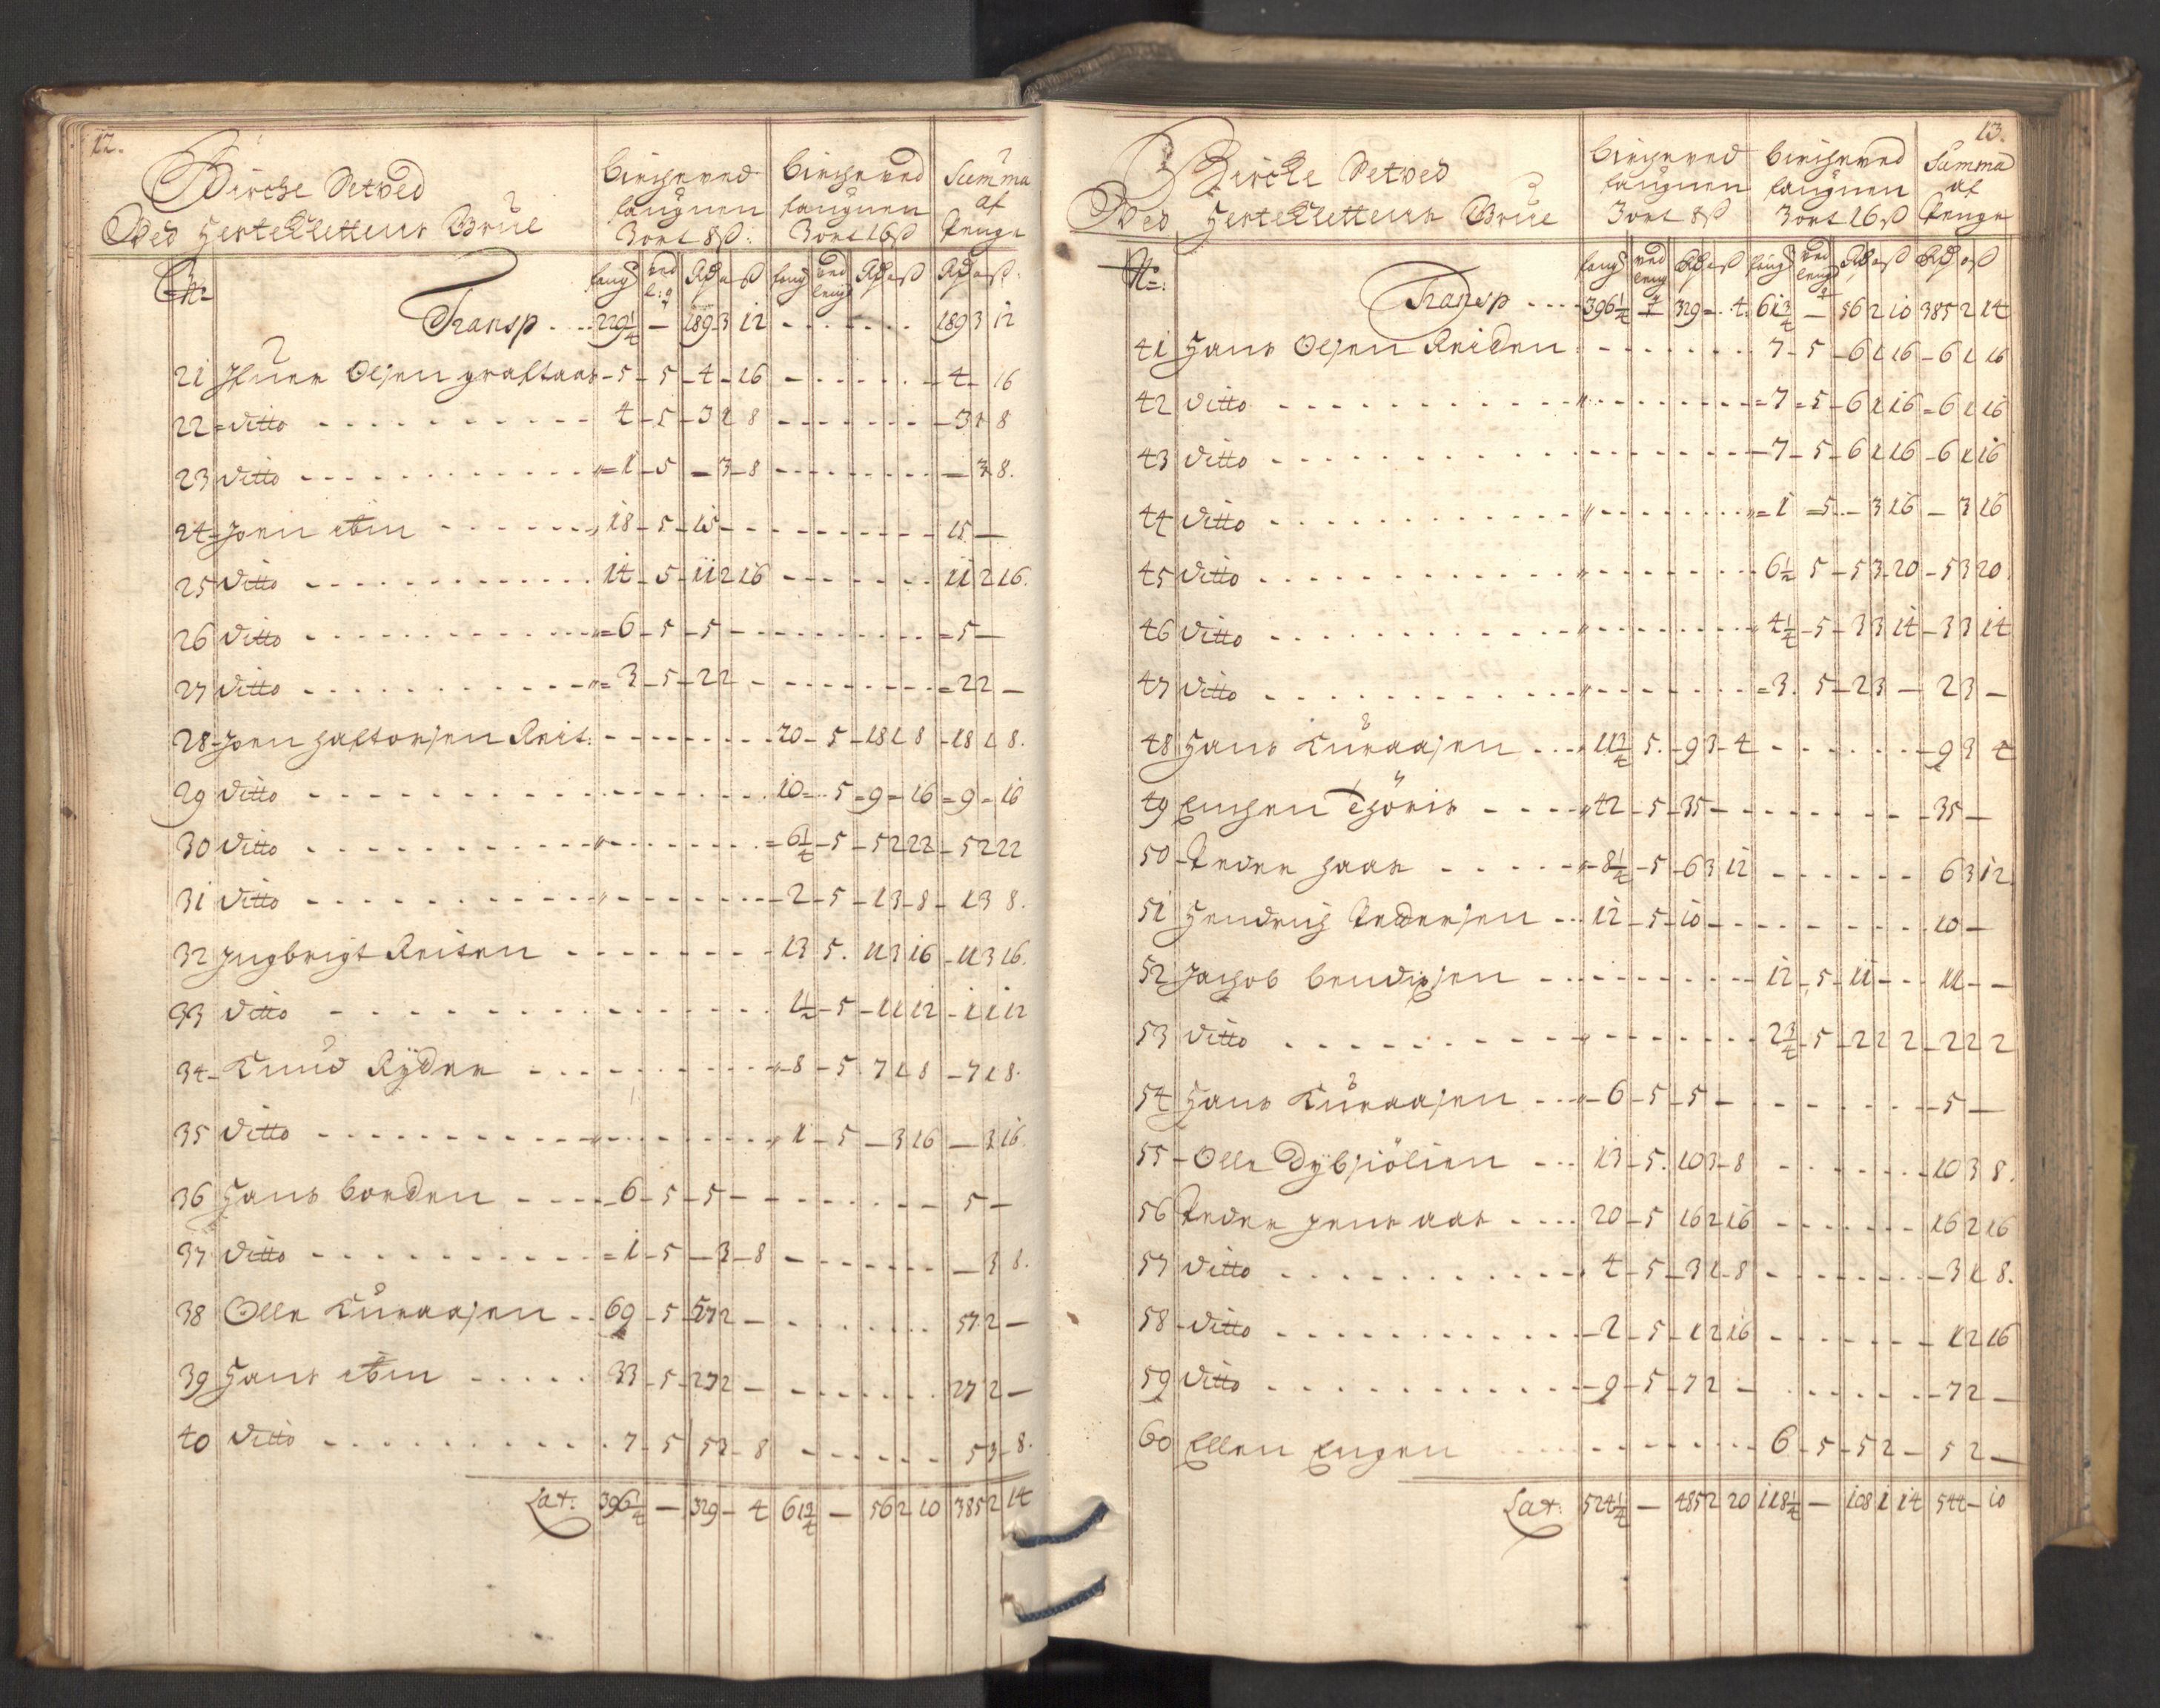 12.
Birche Setved
Ved Hestekletten Brue
Bircheved faugnen 3 ort 8 ß:
Bircheved faugnen 3 ort 16 ß
Summa af Penge
No faug ved l:g Rd o ß faug ved leng Rd o ß Rd o ß
Transp. . . 229 1/4 — 189 3 12 - - - 189 3 12
21 Olsen - 5 - 5 - 4 - 16 - - - 4 - 16
22 ditto - - - 4 - 5 - 3 1 8 - - - 3 1 8
23 ditto - - - 1 - 5 - 3 - 8 - - - 3 8.
24 Joen ibm - - - 18 - 5 - 15 - - - 15 —
25 ditto - - - 14 - 5 - 11 2 16 - - - 11 2 16.
26 ditto - - - 6 - 5 - 5 - - - 5 —
27 ditto - - - 3 - 5 - 2 2 - - - 2 2 —
28 Joen Haftorsen Reit: - - - 20 - 5 - 18 1 8 - 18 1 8.
29 ditto - - - 10 - 5 - 9 - 16 - 9 - 16
30 ditto - - - 6 1/4 - 5 - 5 2 22 - 5 2 22
31 ditto - - - 2 - 5 - 1 3 - 8 - 1 3 8.
32 Ingbrigt Reiten - - - 13 5. 11 3 16 - 11 3 16.
33 ditto - - - 1 1/2 - 5 - 1 1 12 - 1 1 12
34 Knud Ryder - - - 8 - 5 7 1 8 - 7 1 8.
35 ditto - - - 1 - 5 - 3 16 — 3 16.
36 Hans borden - - - 6 - 5 - 5 - - - 5 —
37 ditto - - - 1 - 5 — 3 - 8 - - - 3 8.
38 Olle Kuraasen - - 69 - 5 57 2 - - - 57 2 —
39 Hans ibm - - - 33 - 5 - 27 2 - - - 27 2 —
40 ditto - - - 7 - 5 5 3 - 8 - - - 5 3 - 8.
Lat. 396 1/4 — 329 - 4 61 3/4 — 56 2 10 385 2 14
13.
Bircke Setved
Ved Hestekletten Brue
Bircheved faugnen 3 ort 8 ß
Bircheved faugnen 3 ort 16 ß
Summa af Penge
No: faug ved leng Rd o ß faug ved leng Rd o ß Rd o ß
Transp - - - 396 1/4 — 329 - 4. 61 3/4 — 56 2 10 385 2 14
41 Hans Olsen Reiden - - - 7 - 5 - 6 1 16 - 6 1 16
42 ditto - - - 7 - 5 - 6 1 16 - 6 1 16
43 ditto - - - 7 - 5 - 6 1 16 - 6 1 16
44 ditto - - - 1 - 5 - 3 16 - 3 16
45 ditto - - - 6 1/2 5 - 5 3 20 - 5 3 20
46 ditto - - - 4 1/4 - 5 - 3 3 14 - 3 3 14
47 ditto - - - 3. 5 - 2 3 - 2 3 —
48 Hans Kuraasen - - - 11 3/4 5. - 9 3 - 4 - - - 9 3 4
49 Thöris - - - 42 - 5 - 35 - - - 35 —
50 Peder Haas - - - 8 1/4 - 5 - 6 3 12 - - - 6 3 12
51 Hendrich Pedersen - - - 12 - 5 - 10 - - - 10 —
52 Jachob bendixsen - - - 12 - 5 - 11 - - 11 - -
53 ditto - - - 2 3/4 - 5 - 2 2 2 - 2 2 2
54 Hans Kuraasen - - - 6 - 5 - 5 - - - 5 —
55 Olle Dybsiölien - - - 13 - 5. 10 3 - 8 - - - 10 3 8.
56 Peder Jens aas - - - 20 - 5 16 2 16 - - - 16 2 16
57 ditto - - - 4 - 5 - 3 1 - 8 - - - 3 1 8.
58 ditto - - - 2 - 5 - 1 2 16 - - - 1 2 16
59 ditto - - - 9 - 5 - 7 2 - - - 7 2 —
60 Ellen Engen - - - 6 - 5 - 5 2 - 5 2 —
Lat. 524 1/4 — 435 2 20 118 1/4 — 108 1 14 544 - 10